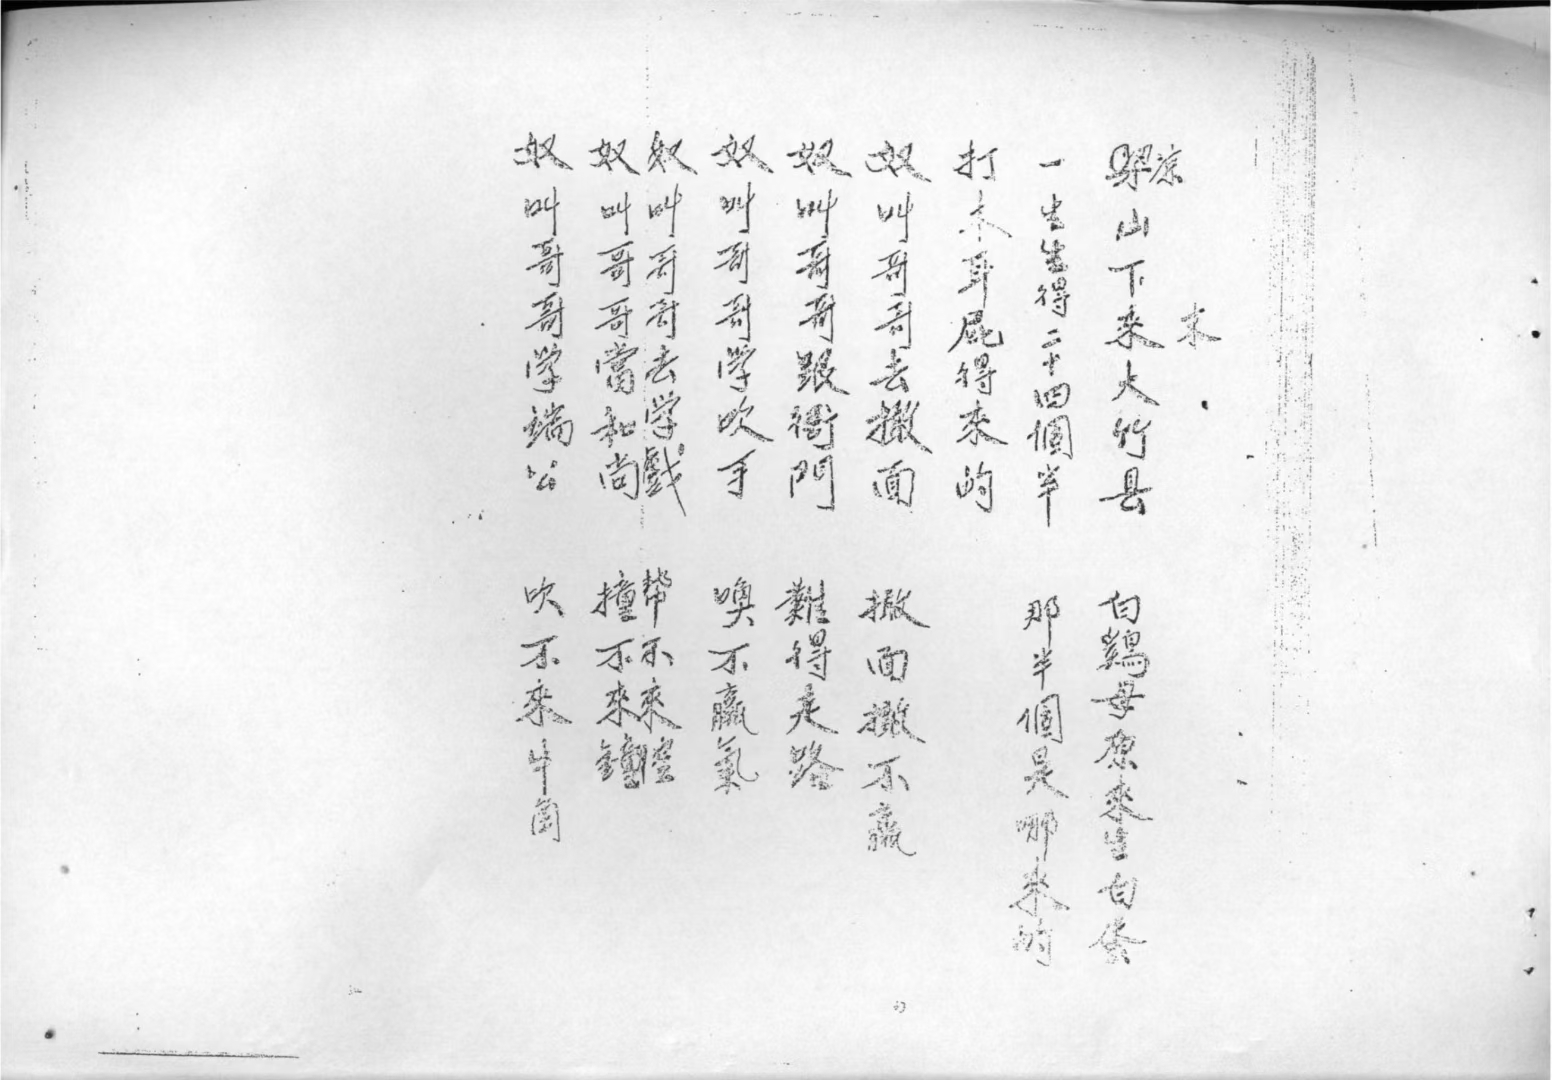 凉
梁山下来大竹县 白鷄母原來生白蛋
木
一生生得二十四個半 那半個是哪來的
打木耳屁得來的
奴叫哥哥去撒面 撒面撒不贏
奴叫哥哥跟衙門 難得走路
奴叫哥哥学吹手 噢不贏氣
奴叫哥哥去学戲 幫不來腔
奴叫哥哥當和尚 撞不來鐘
奴叫哥哥学端公 吹不來牛角